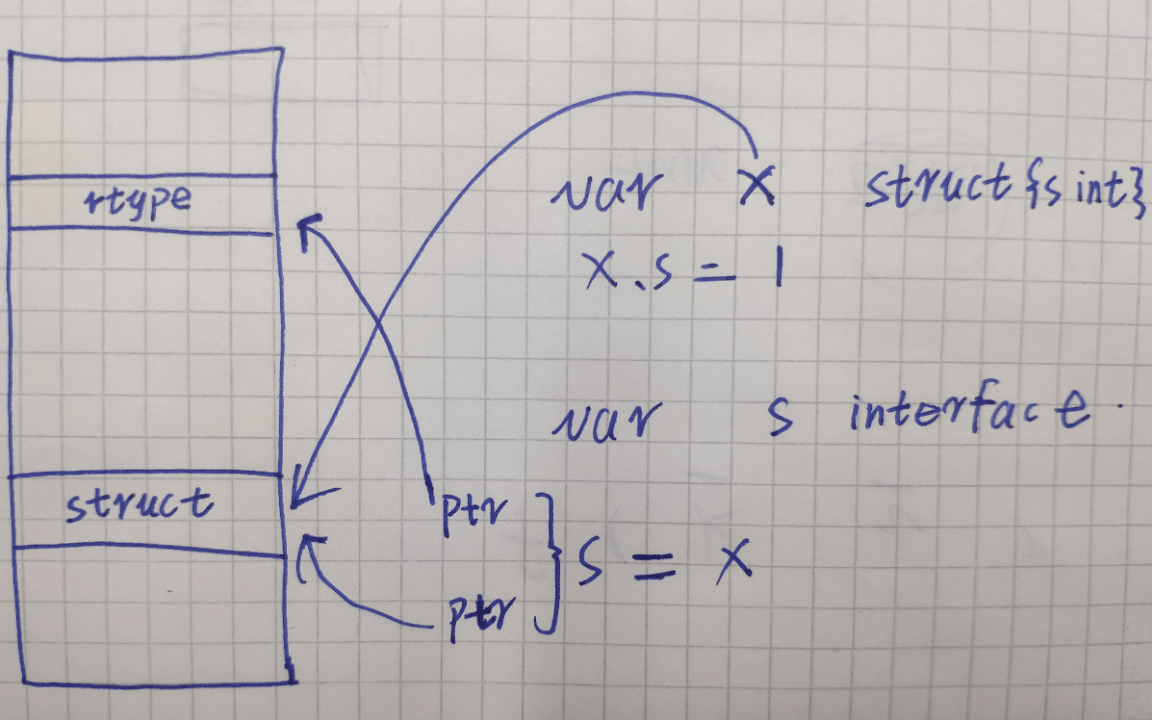 rtype
struct
var x struct{s int}
x.s = 1
var s interface
ptr
ptr
} s = x